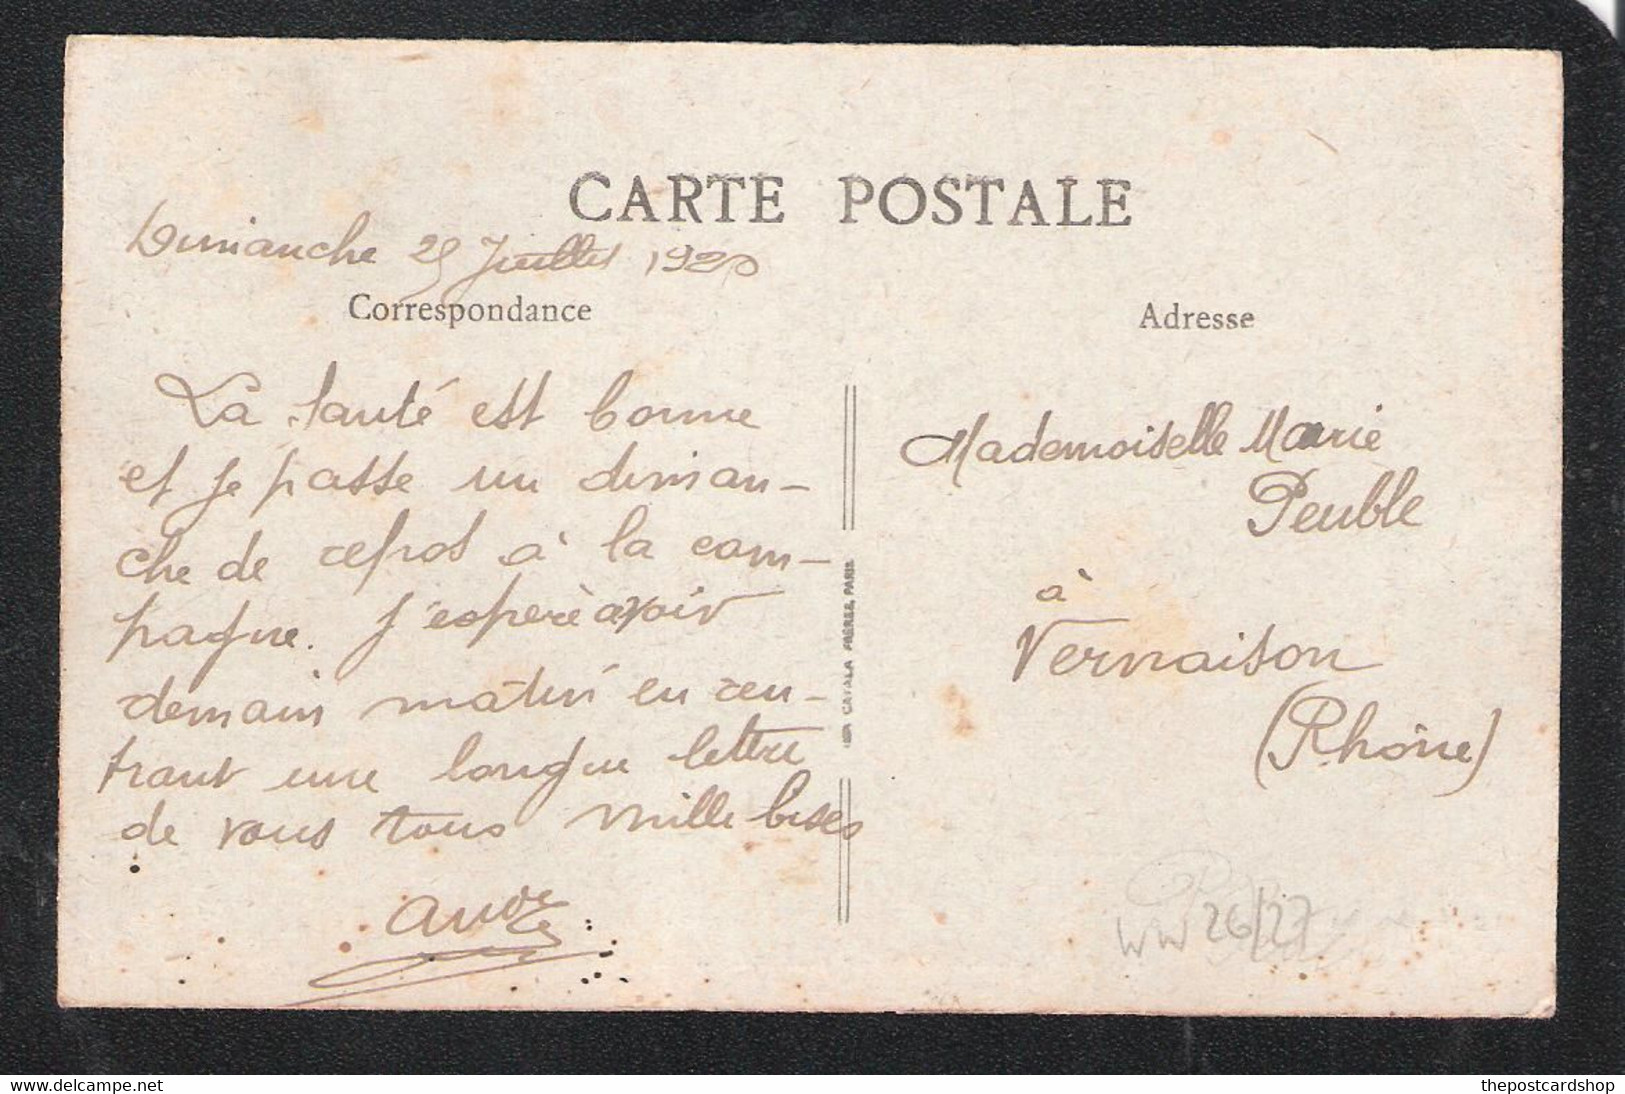 CARTE POSTALE
Dimanche 25 Juillet 1920
Correspondance
Adresse
La santé est bonne
et je passe un diman-
che de repos à la cam-
pagne. J'espère avoir
demain matin en ren-
trant une longue lettre
de vous tous mille bises
André
Mademoiselle Marie
Peuble
à
Vernaison
(Rhône)
IMP. CATALA FRÈRES, PARIS
WW 26/27
www.delcampe.net
thepostcardshop